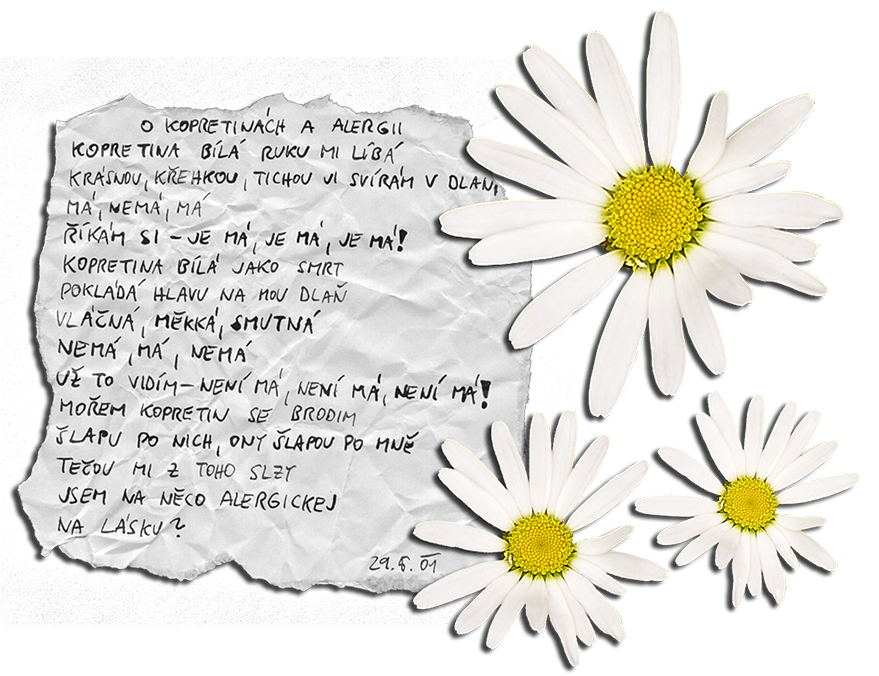 O KOPRETINÁCH A ALERGII
KOPRETINA BÍLÁ RUKU MI LÍBÁ
KRÁSNOU, KŘEHKOU, TICHOU JI SVÍRÁM V DLANI
MÁ, NEMÁ, MÁ
ŘÍKÁM SI – JE MÁ, JE MÁ, JE MÁ!
KOPRETINA BÍLÁ JAKO SMRT
POKLÁDÁ HLAVU NA MOU DLAŇ
VLÁČNÁ, MĚKKÁ, SMUTNÁ
NEMÁ, MÁ, NEMÁ
UŽ TO VIDÍM – NENÍ MÁ, NENÍ MÁ, NENÍ MÁ!
MOŘEM KOPRETIN SE BRODIM
ŠLAPU PO NICH, ONY ŠLAPOU PO MNĚ
TEČOU MI Z TOHO SLZY
JSEM NA NĚCO ALERGICKEJ
NA LÁSKU?
29.5.01